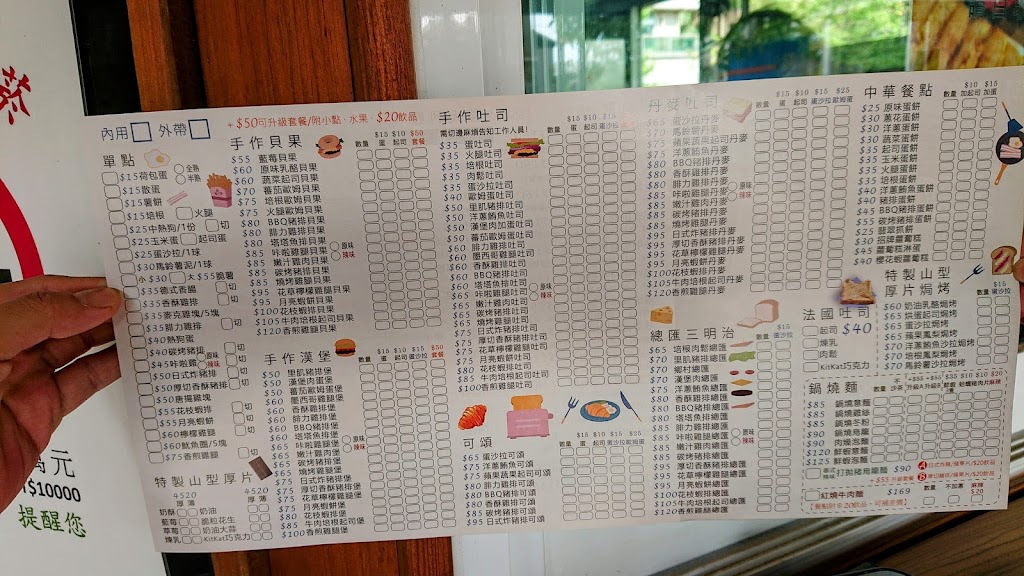 內用 外帶
+$50可升級套餐/附小點、水果、$20飲品
單點
$15荷包蛋 全熟 半熟
$15散蛋
$15薯餅
$15培根 火腿
$25中熱狗/1份 切
$25玉米蛋 起司蛋
$25蛋沙拉/1球
$30馬鈴薯泥/1球
小$40 大$55脆薯
$35德式香腸 切
$35香酥雞排 切
$35麥克雞塊/5塊
$35腓力雞排 切
$40熱狗
$40碳烤豬排 切
$45咔啦雞 原味 辣味 切
$50日式炸豬排 切
$50厚切香酥豬排 切
$50唐揚雞塊
$55花枝蝦排 切
$55月亮蝦餅 切
$60檸檬雞腿 切
$60魷魚圈/5塊
$75香煎雞腿 切
特製山型厚片
4520
厚薄
4520
厚薄
奶酥 奶油
藍莓 脆粒花生
草莓 奶油大蒜
煉乳 KitKat巧克力
手作貝果
數量 $15蛋 $10起司 $50套餐
$55 藍莓貝果
$60 原味乳酪貝果
$60 蔬菜起司貝果
$70 蕃茄歐姆貝果
$75 培根歐姆貝果
$75 火腿歐姆貝果
$80 BBQ豬排貝果
$80 腓力雞排貝果
$80 塔塔魚排貝果
$85 咔啦雞腿貝果 原味 辣味
$85 嫩汁雞肉貝果
$85 碳烤豬排貝果
$85 燒烤雞腿貝果
$95 花草檸檬雞腿貝果
$95 月亮蝦餅貝果
$100花枝蝦排貝果
$105牛肉培根起司貝果
$120香煎雞腿貝果
手作漢堡
數量 $15蛋 $10起司 $15蛋沙拉 $50套餐
$50 里肌豬排堡
$50 漢堡肉蛋堡
$50 蕃茄歐姆蛋堡
$50 洋蔥鮪魚堡
$60 香酥雞排堡
$60 腓力雞排堡
$60 BBQ豬排堡
$60 塔塔魚排堡
$65 咔啦雞腿堡 原味 辣味
$65 嫩汁雞肉堡
$65 碳烤豬排堡
$65 燒烤雞腿堡
$75 日式炸豬排堡
$75 厚切香酥豬排堡
$75 花草檸檬雞腿堡
$75 月亮蝦餅堡
$80 花枝蝦排堡
$85 牛肉培根起司堡
$100香煎雞腿堡
手作吐司
需切邊麻煩告知工作人員!
數量 $15蛋 $10起司 $15蛋沙拉
$35 蛋吐司
$35 火腿吐司
$35 培根吐司
$35 肉鬆吐司
$35 蛋沙拉吐司
$40 歐姆蛋吐司
$50 里肌豬排吐司
$50 洋蔥鮪魚吐司
$50 漢堡肉加蛋吐司
$50 蕃茄歐姆蛋吐司
$60 腓力雞排吐司
$60 墨西哥雞吐司
$60 香酥雞排吐司
$60 BBQ豬排吐司
$60 塔塔魚排吐司
$65 咔啦雞腿吐司 原味 辣味
$65 嫩汁雞肉吐司
$65 碳烤豬排吐司
$65 燒烤雞腿吐司
$75 日式炸豬排吐司
$75 厚切香酥豬排吐司
$75 花草檸檬雞腿吐司
$75 月亮蝦餅吐司
$80 花枝蝦排吐司
$85 牛肉培根起司吐司
$100香煎雞腿吐司
可頌
數量 $15蛋 $10起司 $15蛋沙拉 $25歐姆蛋
$65 蛋沙拉可頌
$75 洋蔥鮪魚可頌
$75 蘋果蔬菜起司可頌
$80 腓力雞排可頌
$80 BBQ豬排可頌
$80 香酥雞排可頌
$85 碳烤豬排可頌
$95 日式炸豬排可頌
丹麥吐司
數量 $15蛋 $10起司 $15蛋沙拉 $25歐姆蛋
$65 蛋沙拉丹麥
$70 馬鈴薯丹麥
$75 蘋果蔬菜起司丹麥
$75 洋蔥鮪魚丹麥
$80 BBQ豬排丹麥
$80 腓力雞排丹麥
$85 咔啦雞腿丹麥 原味 辣味
$85 嫩汁雞肉丹麥
$85 碳烤豬排丹麥
$85 燒烤雞腿丹麥
$95 日式炸豬排丹麥
$95 厚切香酥豬排丹麥
$95 花草檸檬雞腿丹麥
$95 月亮蝦餅丹麥
$100花枝蝦排丹麥
$120香煎雞腿丹麥
總匯三明治
數量 $15蛋 $10起司 $15蛋沙拉
$65 培根肉鬆總匯
$70 里肌豬排總匯
$70 鄉村總匯
$70 漢堡肉總匯
$70 洋蔥鮪魚總匯
$80 香酥雞排總匯
$80 腓力雞排總匯
$80 BBQ豬排總匯
$80 塔塔魚排總匯
$85 咔啦雞腿總匯 原味 辣味
$85 嫩汁雞肉總匯
$85 碳烤豬排總匯
$85 燒烤雞腿總匯
$95 厚切香酥豬排總匯
$95 日式炸豬排總匯
$95 花草檸檬雞腿總匯
$95 月亮蝦餅總匯
$100花枝蝦排總匯
$105牛肉培根起司總匯
$120香煎雞腿總匯
中華餐點
數量 $10加起司 $15加蛋
$25 原味蛋餅
$30 蔥花蛋餅
$30 洋蔥蛋餅
$30 蔬菜蛋餅
$35 起司蛋餅
$35 玉米蛋餅
$35 火腿蛋餅
$35 培根蛋餅
$40 洋蔥鮪魚蛋餅
$40 豬排蛋餅
$45 BBQ豬排蛋餅
$55 碳烤豬排蛋餅
$25 翡翠抓餅
$30 招牌蘿蔔糕
$45 蘿蔔糕淋蛋
$40 櫻花蝦蘿蔔糕
特製山型
厚片焗烤
數量 $15蛋沙拉
$60 奶油乳酪焗烤
$65 燻蛋起司焗烤
$65 蛋沙拉焗烤
$70 燒烤雞焗烤
$75 洋蔥鮪魚沙拉焗烤
$70 培根鳳梨焗烤
$70 馬鈴薯沙拉焗烤
法國吐司
起司 $40
煉乳
肉鬆
KitKat巧克力
鍋燒麵
$85 鍋燒意麵
$85 鍋燒雞絲
$85 鍋燒冬粉
$90 鍋燒烏龍
$90 肉燥意麵
$120 鮮蝦意麵
$125 鮮蝦烏龍
打拋豬烏龍麵 $90
+$55升級套餐
紅燒牛肉麵 $169
數量 不加蔥 麻辣$20
萬元
T$10000
提醒您